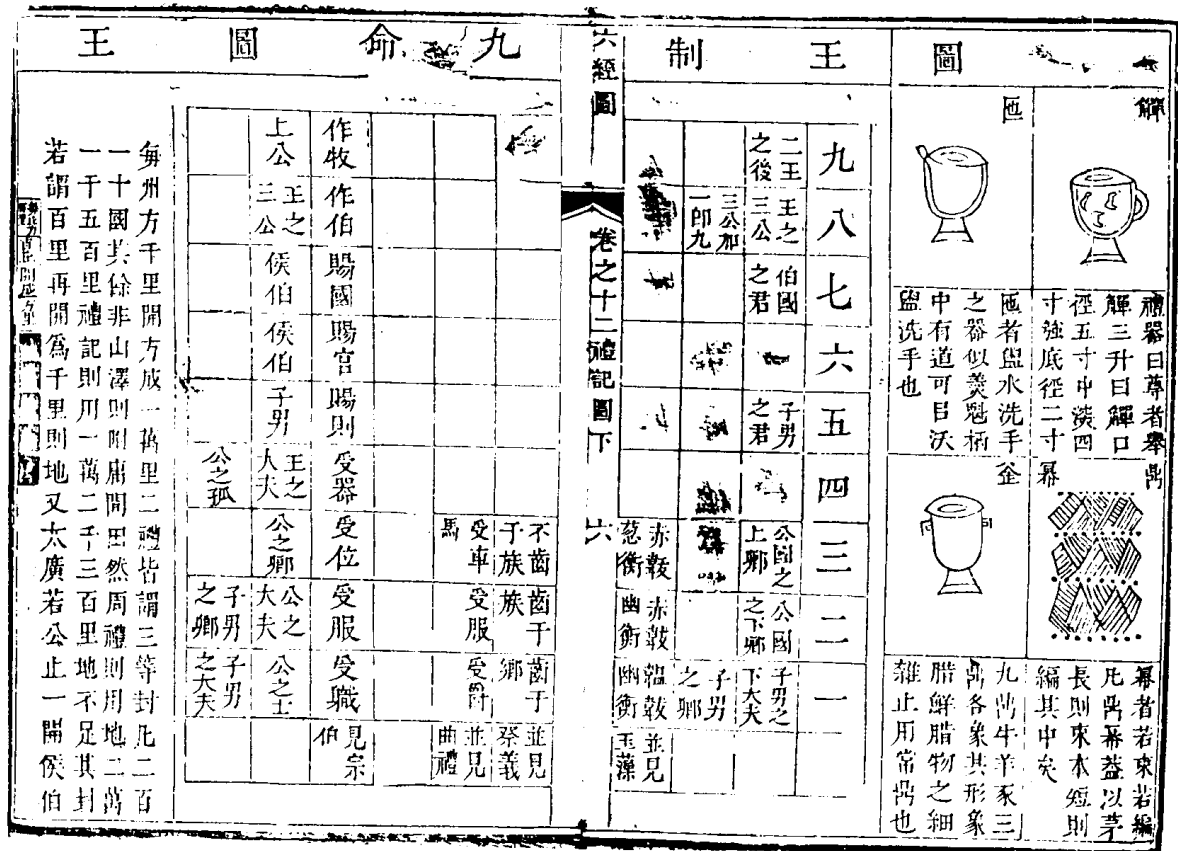 圖
觶
匜
禮器曰尊者舉
觶三升曰觶口
徑五寸中深四
寸強底徑二寸
匜者盥水洗手
之器似羹魁柄
中有道可㠯沃
盥洗手也
鼎
冪
釜
冪者若束若編
凡鼎冪蓋以茅
長則束本短則
編其中矣
九鼎牛羊豕三
鼎各象其形象
腊鮮腊物之細
雜止用常鼎也
王制
九
八
七
六
五
四
三
二
一
二王之後
王之三公
伯國之君
子男之君
公國之上卿
公國之下卿
子男之下大夫
三公加一即九
子男之卿
赤韍蔥衡
赤韍幽衡
韞韍幽衡
並見玉藻
六經圖
卷之十二禮記圖下
六
九命圖
不齒于族
齒于族
齒于鄉
並見祭義
受車馬
受服
受爵
並見曲禮
作牧
作伯
賜國
賜官
賜則
受器
受位
受服
受職
見宗伯
上公
王之三公
侯伯
侯伯
子男
王之大夫
公之卿
公之大夫
公之士
公之孤
子男之卿
子男之大夫
王
每州方千里開方成一萬里二禮皆謂三等封凡二百
一十國其餘非山澤則附庸閒田然周禮則用地二萬
一千五百里禮記則用一萬二千三百里地不足其封
若謂百里再開為千里則地又太廣若公止一開侯伯